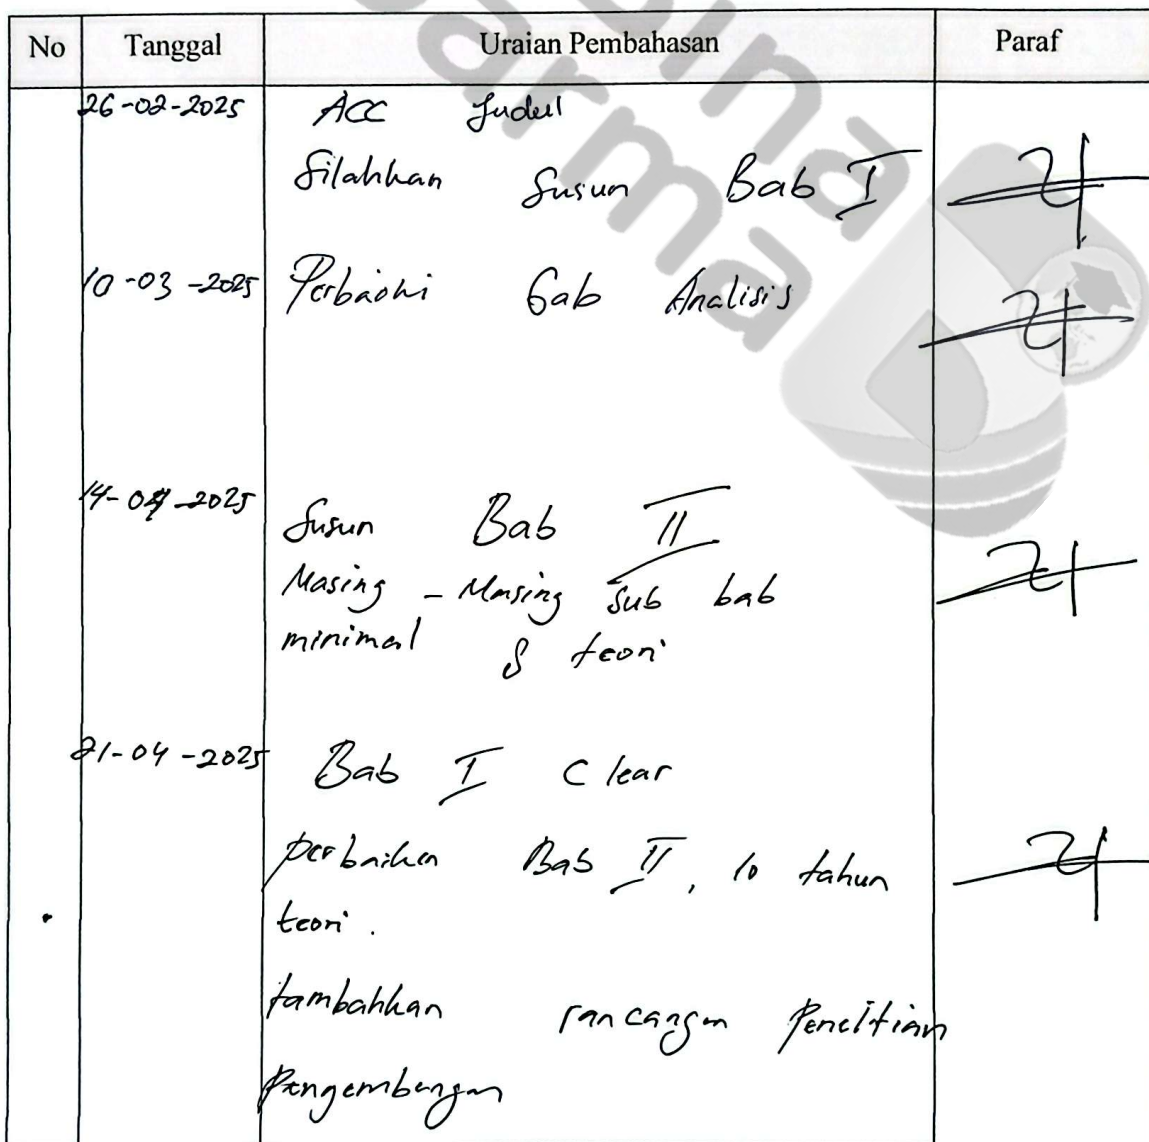 No Tanggal Uraian Pembahasan Paraf
26-02-2025 ACC Judul
Silahkan Susun Bab I
10-03-2025 Perbaiki Gab Analisis
14-04-2025 Susun Bab II
Masing - Masing Sub bab
minimal teori
21-04-2025 Bab I Clear
perbaikan Bab II, 10 tahun
teori.
tambahkan rancangan Penelitian
Pengembangan